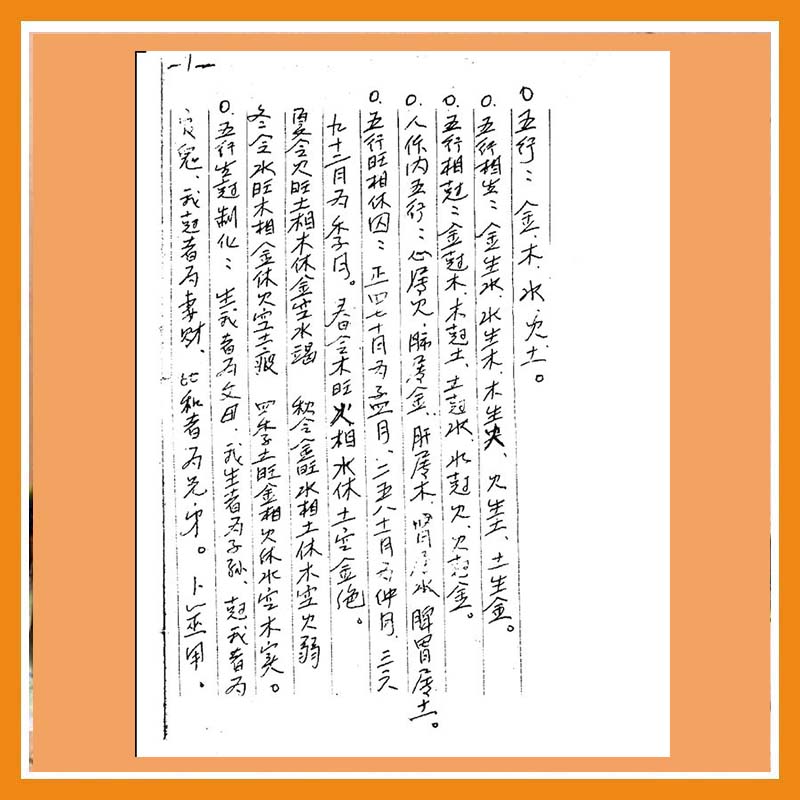 -1-
0五行：金.木.水.火.土。
0.五行相生：金生水、水生木、木生火、火生土、土生金。
0.五行相尅：金尅木、木尅土、土尅水、水尅火、火尅金。
0.人体内五行：心属火.肺属金、肝属木.肾属水脾胃属土。
0.五行旺相休囚：正四七十月为孟月、二五八十一月为仲月、三六
九十二月为季月。春令木旺火相水休土空金绝。
夏令火旺土相木休金空水竭 秋令金旺水相土休木空火弱
冬令水旺木相金休火空土 四季土旺金相火休水空木
0.五行生尅制化：生我者为父母、我生者为子孙、尅我者为
鬼、我尅者为妻财、比和者为兄弟。卜筮用.